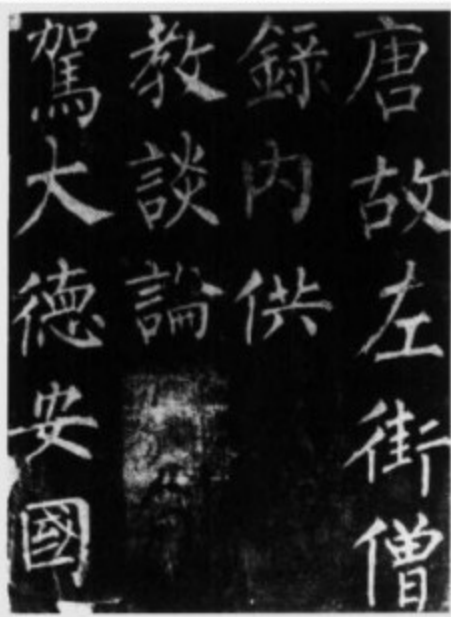 唐故左街僧
錄內供
教談論
駕大德安國